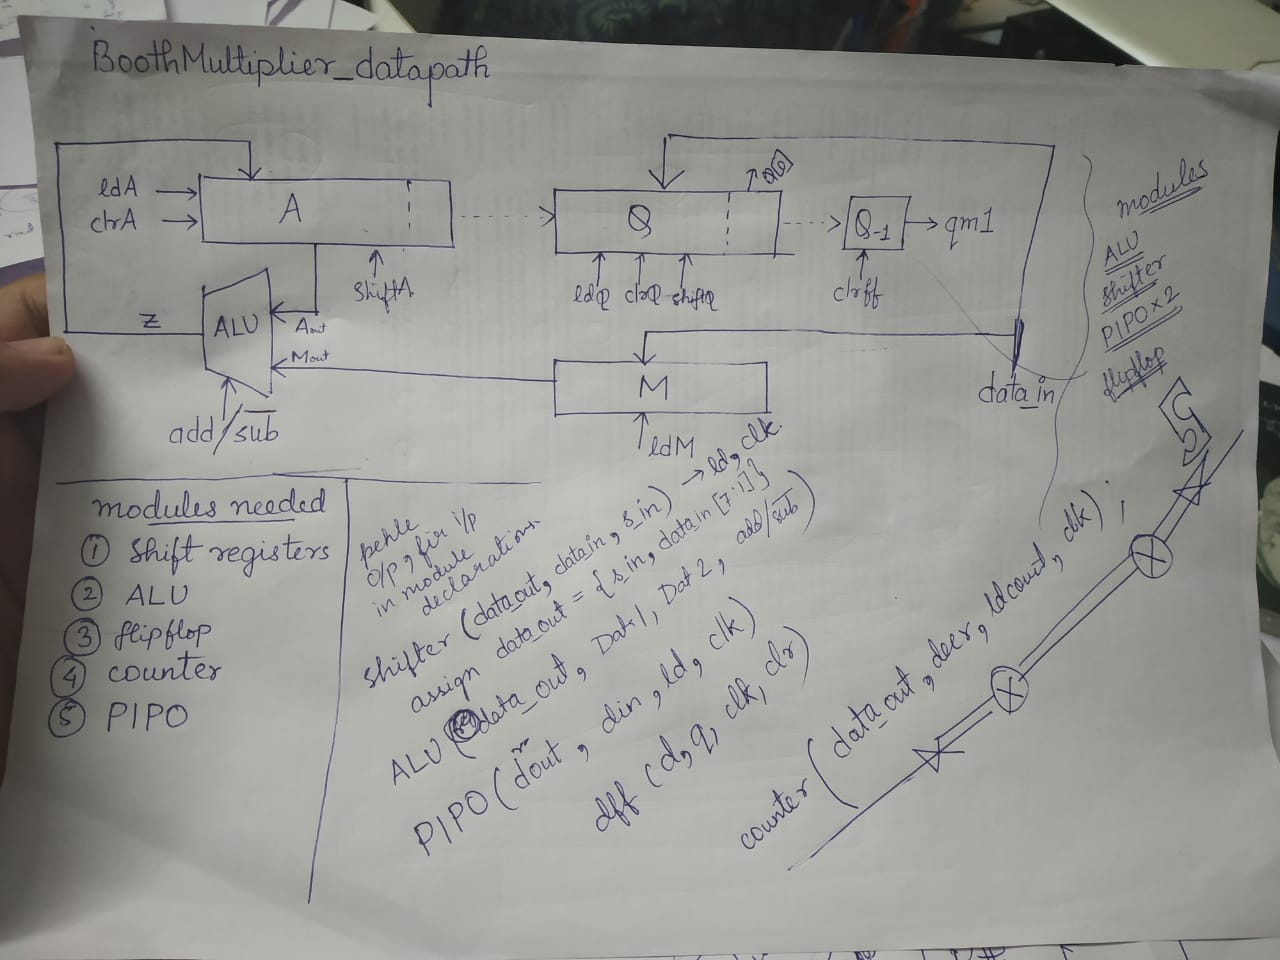 BoothMultiplier_datapath
ldA
clrA
A
shiftA
Z
ALU
Aout
Mout
add/sub
Q
Q[0]
ldQ clrQ shiftQ
Q-1
qm1
clrff
M
ldM
data_in
modules
ALU
shifter
PIPO×2
flipflop
modules needed
① shift registers
② ALU
③ flipflop
④ counter
⑤ PIPO
pehle
o/p, fir i/p
in module
declarations
shifter (dataout, datain, s_in) → ld, clk.
assign data_out = {s_in, datain[7:1]}
ALU (data_out, Dat1, Dat2, add/sub)
PIPO (dout, din, ld, clk)
dff (d, q, clk, clr)
counter (data_out, decr, ldcount, clk);